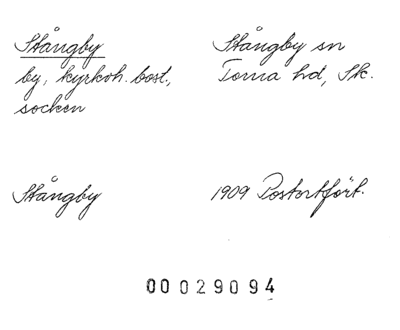 Stångby
by, kyrkoh. bost.,
socken
Stångby sn
Torna hd, Sk.
Stångby
1909 Postortfört.
00029094